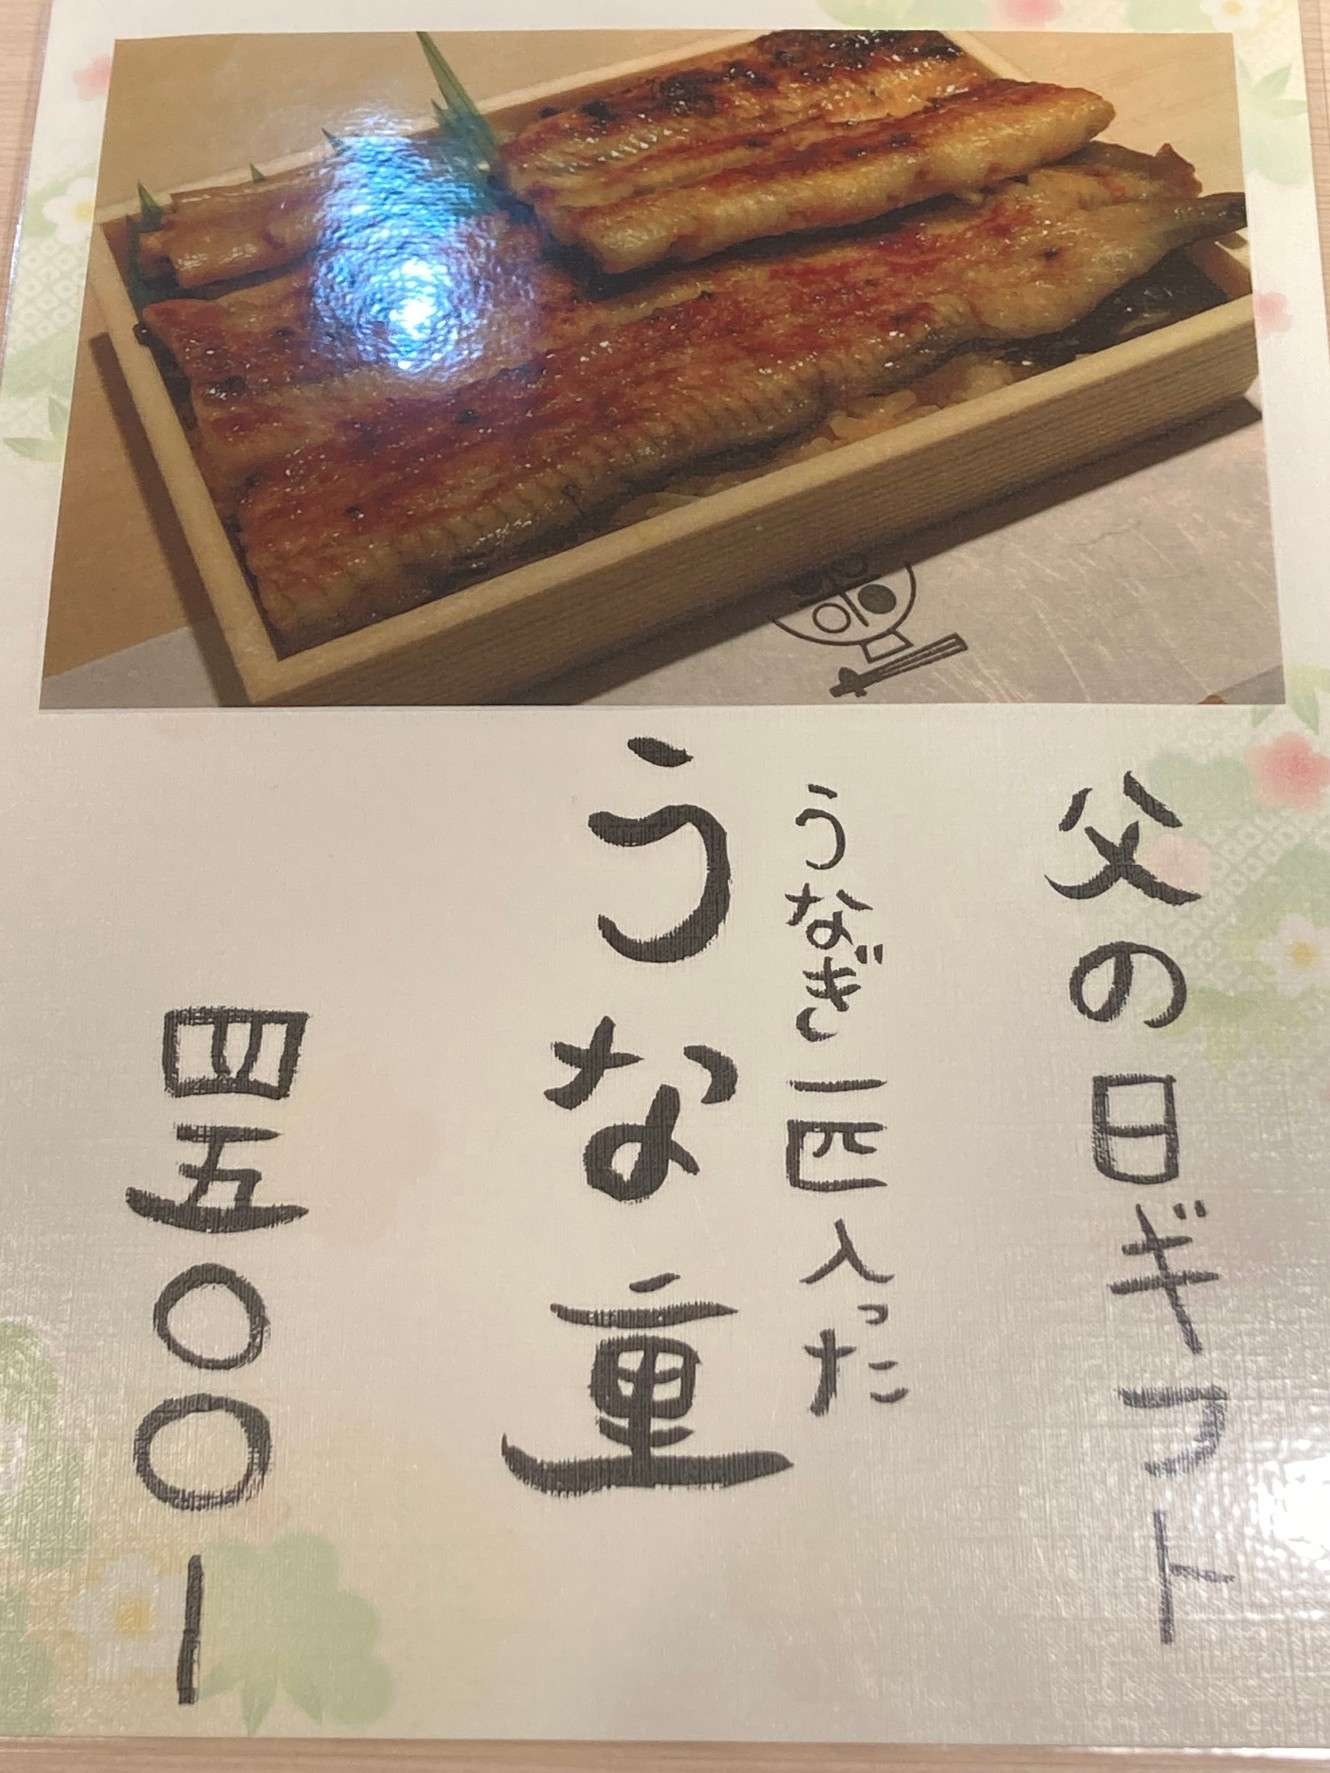 父の日ギフト
うなぎ一匹入った
うな重
四五〇〇ー